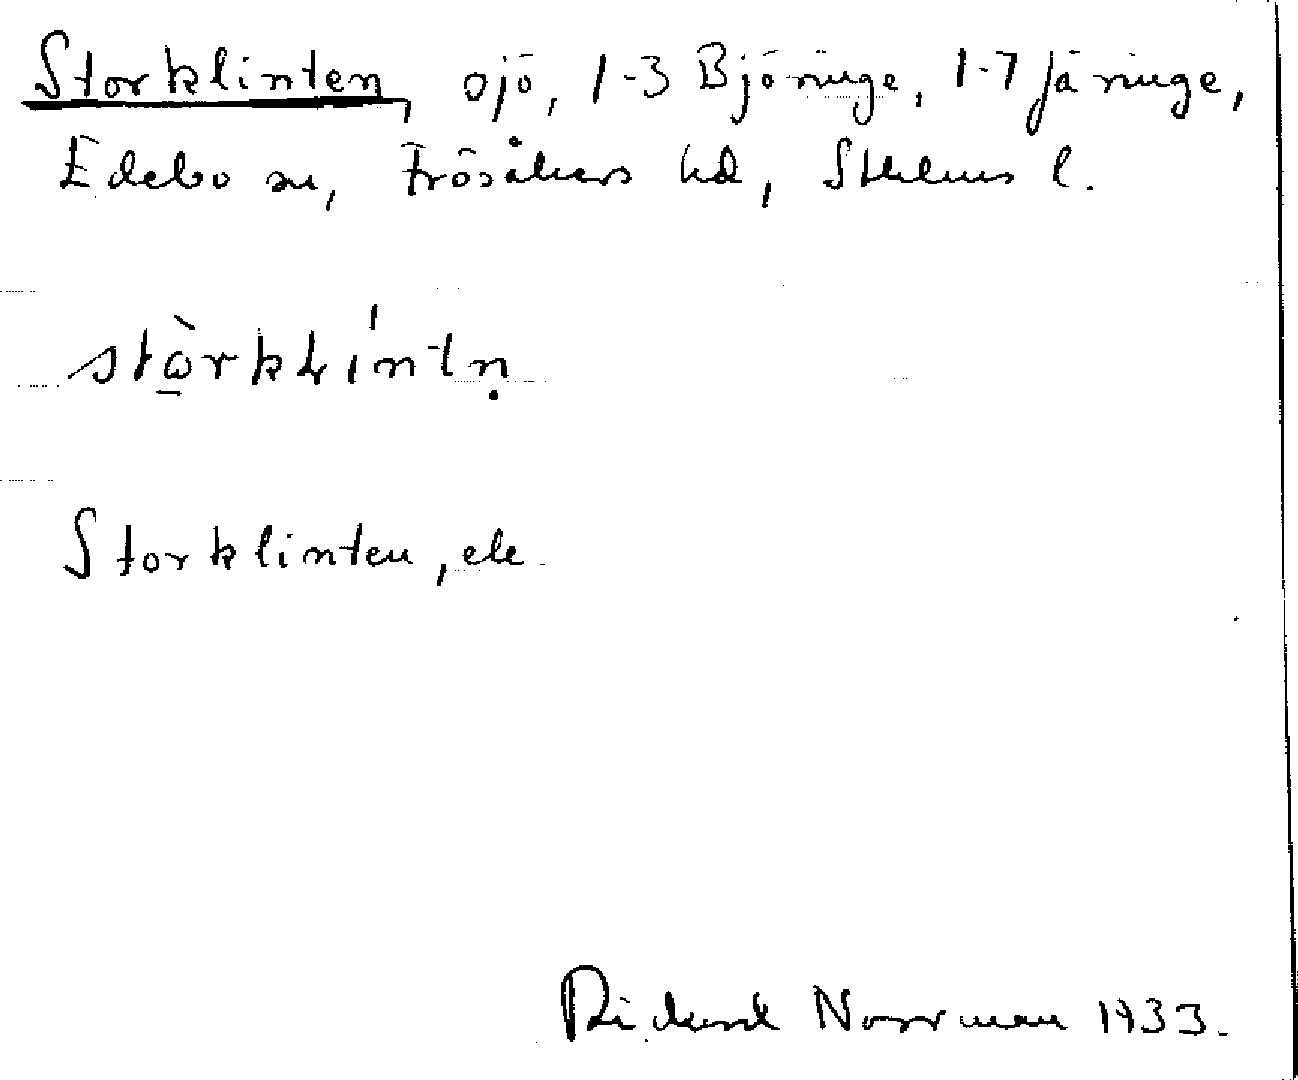 Storklinten, sjö, 1-3 Björinge, 1-7 Järinge,
Edebo sn, Frösåkers hd, Sthlms l.
stòrklíntn̥
Storklinten, ek
Rickard Norrman 1933.